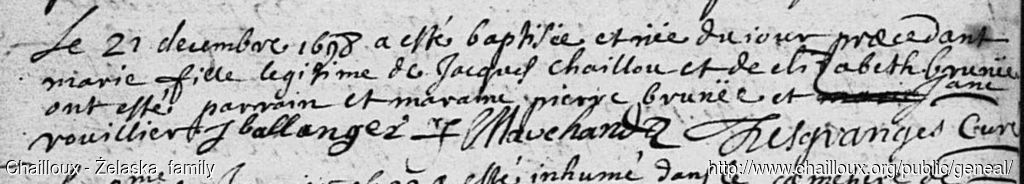 Le 21 decembre 1698 a esté baptisée et née du jour præcedant
marie fille legitime de Jacques chaillou et de elizabeth brunëe
ont esté parrain et maraine pierre brunëe et Jane
rouillier J ballanger Marchand Desgranges Curé
esté inhumé dans le
Chailloux - Żelaska family
http://www.chailloux.org/public/geneal/